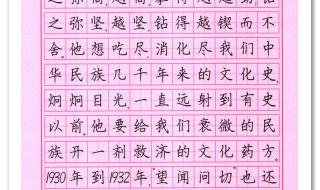 之弥高,越高,攀得越起劲;钻
之弥坚,越坚,钻得越锲而不
舍。他想吃尽、消化尽我们中
华民族几千年来的文化史,
炯炯目光,一直远射到有史
以前。他要给我们衰微的民
族开一剂救济的文化药方。
1930年到1932年,望闻问切也还